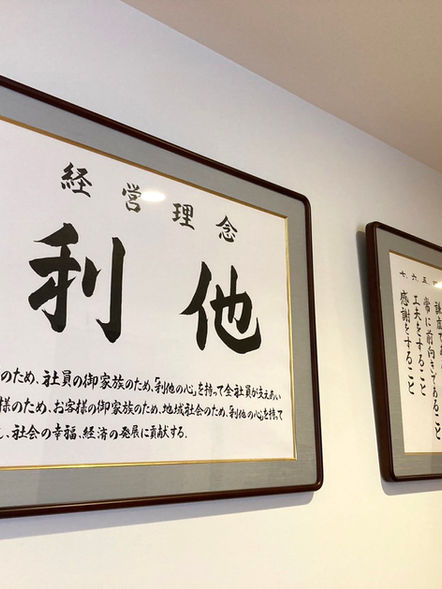 経営理念
利他
のため、社員の御家族のため、「利他の心」を持って全社員が支えあい
様のため、お客様の御家族のため、地域社会のため、「利他の心」を持って
、社会の幸福、経済の発展に貢献する。
五、
六、
七、
常に前向きであること
工夫をすること
感謝をすること